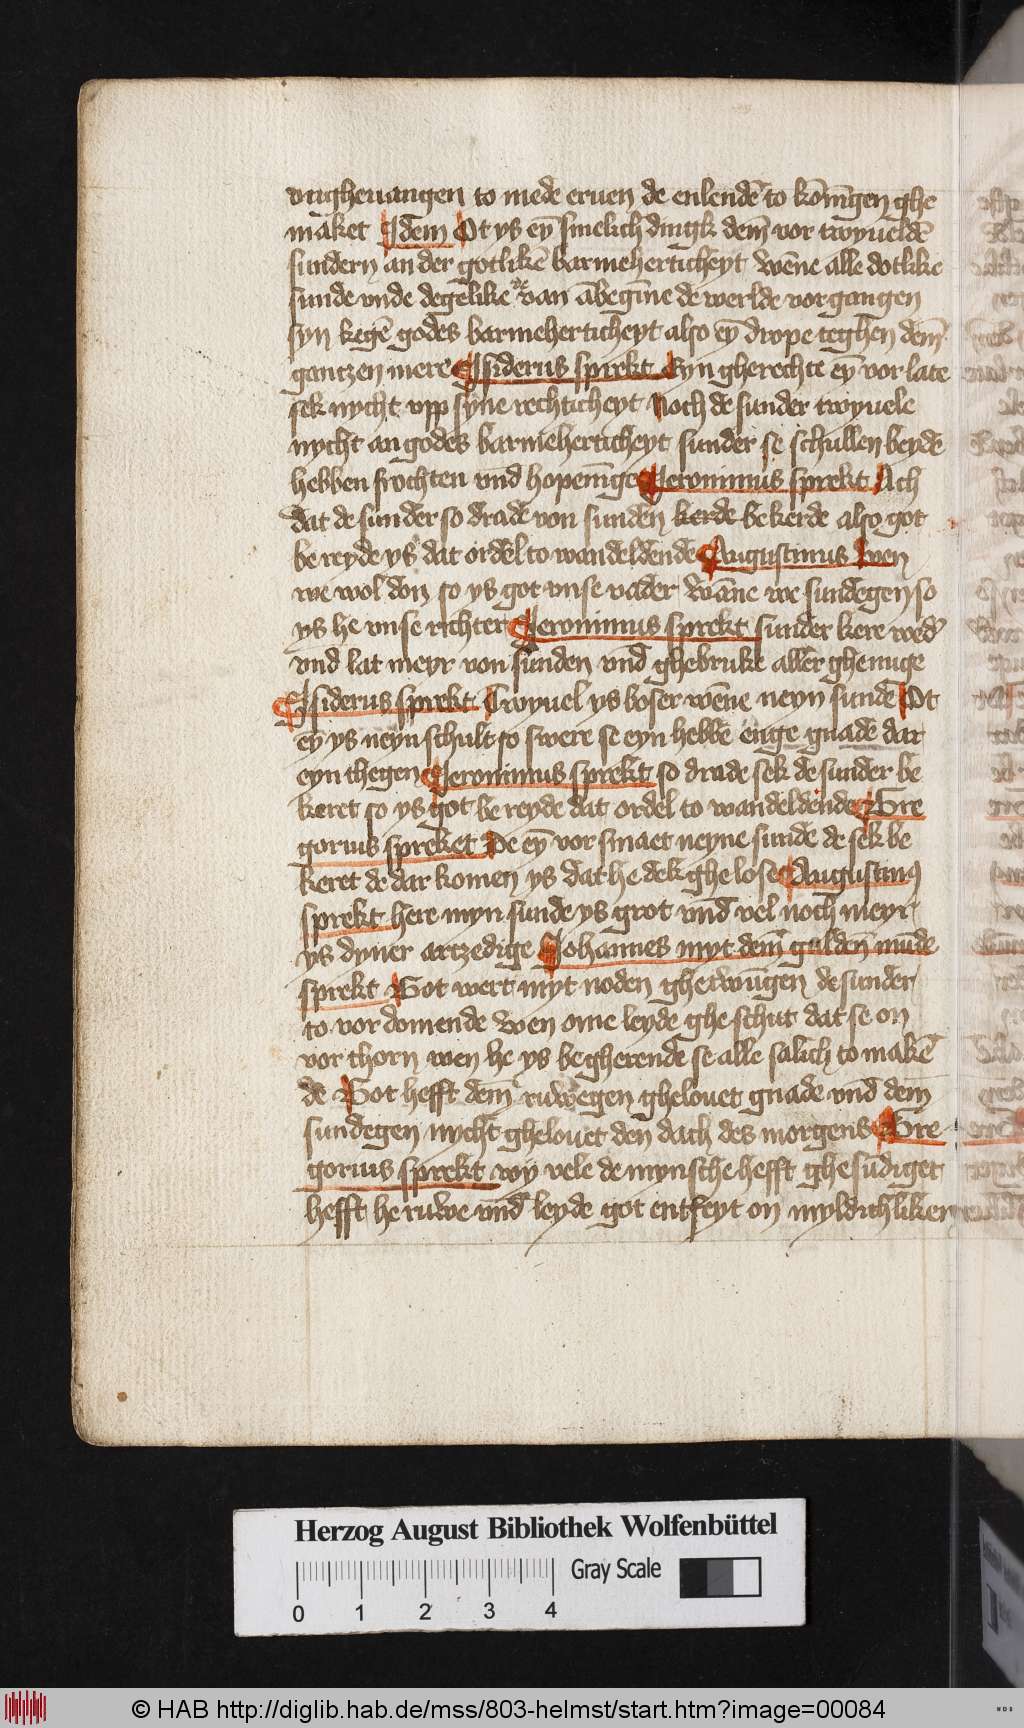 vngheuangen to mede eruen de enlendē to kōnīgen ghe
maket Idem Ot ys eȳ smelich dingk dem̄ vor twyueldē
sundern an der gotlikē barmeherticheyt wēne alle dotlike
sunde vnde degelike van ābegīne de werlde vorgangen
syn kegē godes barmeherticheyt also eȳ drope teghen dem̄
gantzen mere Isiderus sprekt Eyn gherechte eȳ vor late
sek nycht vpp syne rechticheyt Noch de sunder twyuele
nycht an godes barmeherticheyt sunder se schullen beydē
hebben frochten vnd hopenīge Jeronimus sprekt Ach
dat de sunder so drade von sunden kerde be kerde also got
be reyde ys dat ordel to wandeldende Augustinus Wen
we wol don so ys got vnse vader Wāne we sundegen so
ys he vnse richter Jeronimus sprekt sunder kere wed̓
vnd lat meyr von sunden vnd ghebruke aller ghenuge
Isiderus sprekt Twyuel ys boser wēne neyn sunde Ot
eȳ ys neyn schult so swere se eyn hebbe enge gnade dar
eyn thegen Jeronimus sprekt so drade sek de sunder be
keret so ys got be reyde dat ordel to wandeldende Gre
gorius spreket De eȳ vor smaet neyne sunde de sek be
keret de dar komen ys dat he dek ghe lose Augustinꝯ
sprekt here myn sunde ys grot vnd vel noch meyr
ys dyner artzedige Johannes myt dem̄ guldēn mūde
sprekt Got wert myt noden ghetwūgen de sunder
to vor domende Wen ome leyde ghe schut dat se on
vor thorn wen he ys begherende se alle salich to makē
de Got hefft dem̄ ruwegen ghelouet gnade vnd dem
sundegen nycht ghelouet den dach des morgens Gre
gorius sprekt wy vele de mynsche hefft ghe sūdiget
hefft he ruwe vnd leyde got entfeyt on myldichliken
Herzog August Bibliothek Wolfenbüttel
Gray Scale
0 1 2 3 4
© HAB http://diglib.hab.de/mss/803-helmst/start.htm?image=00084